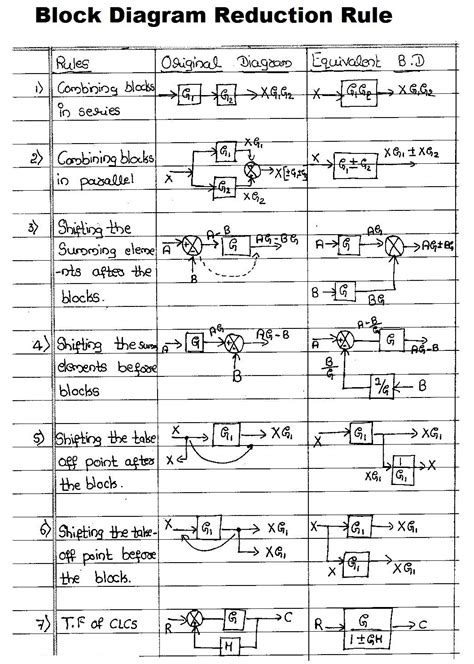 Block Diagram Reduction Rule
Rules Original Diagram Equivalent B.D
1) Combining blocks in series
→ G1 → G2 → XG1G2
X → G1G2 → XG1G2
2) Combining blocks in parallel
X G1 XG1
G2 XG2
X G1 ± G2 XG1 ± XG2
3) Shifting the Summing eleme-nts after the blocks.
A A-B G AG-BG
B
A G AG AG±BG
B G BG
4) Shifting the sum elements before blocks
A G AG AG-B
B
A A-B/G G AG-B
B/G 1/G B
5) Shifting the take off point after the block.
X G1 XG1
X
X G1 XG1
XG1 1/G1 X
6) Shifting the take-off point before the block.
X G1 XG1
XG1
X G1 XG1
X G1 XG1
7) T.F of CLCS
R G C
H
R G/1±GH C